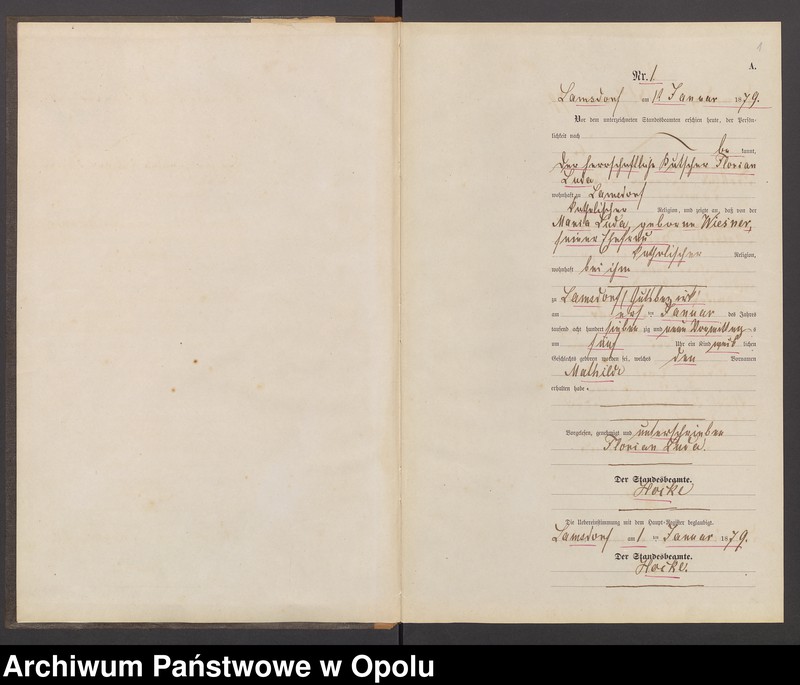 1
A.
Nr. 1.
Lamsdorf am 1t Januar 1879.
Vor dem unterzeichneten Standesbeamten erschien heute, der Persön-
lichkeit nach
be kannt,
der herrschaftliche Kutscher Florian
Duda
wohnhaft zu Lamsdorf
katholischer Religion, und zeigte an, daß von der
Maria Duda, geborne Wiesner,
seiner Ehefrau
katholischer Religion,
wohnhaft bei ihm
zu Lamsdorf Gutsbezirk
am ten Januar des Jahres
tausend acht hundert sieben zig und neun Vormittag s
um fünf Uhr ein Kind weib lichen
Geschlechts geboren worden sei, welches den Vornamen
Mathilde
erhalten habe.
Vorgelesen, genehmigt und unterschrieben
Florian Duda.
Der Standesbeamte.
Hocke
Die Uebereinstimmung mit dem Haupt-Register beglaubigt.
Lamsdorf am 1 ten Januar 1879.
Der Standesbeamte.
Hocke.
Archiwum Państwowe w Opolu